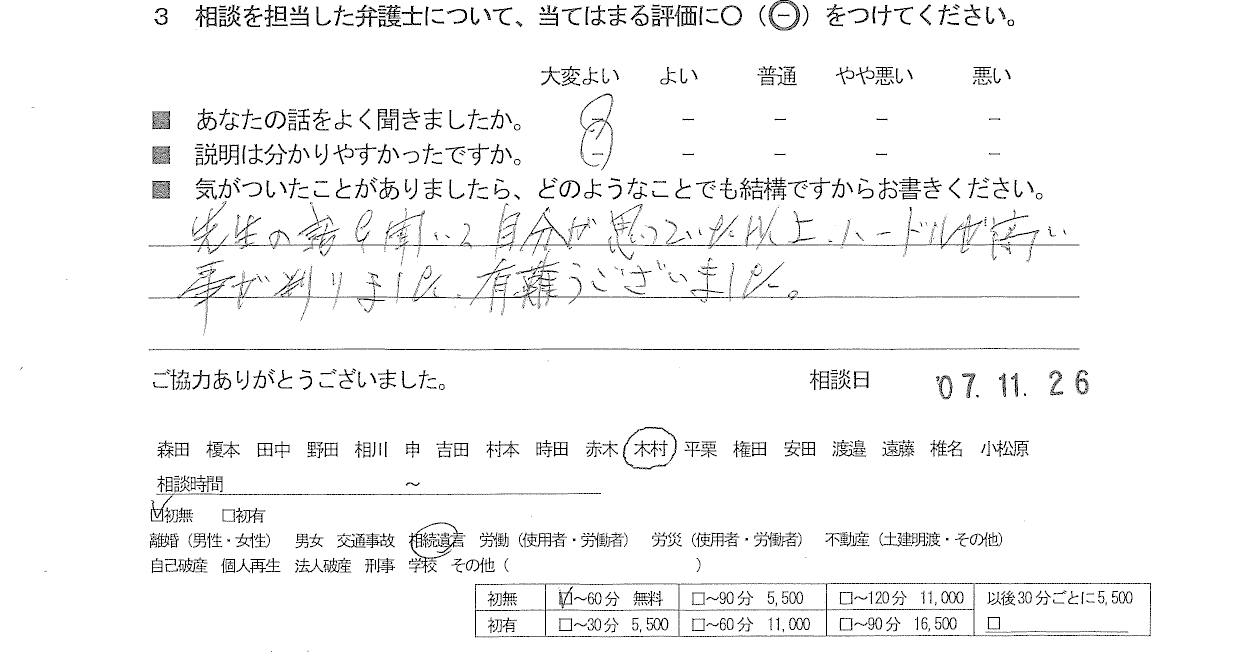 3 相談を担当した弁護士について、当てはまる評価に〇（㊀）をつけてください。
大変よい よい 普通 やや悪い 悪い
■ あなたの話をよく聞きましたか。 － － － － －
■ 説明は分かりやすかったですか。 － － － － －
■ 気がついたことがありましたら、どのようなことでも結構ですからお書きください。
先生の話を聞いて自分が思っていた以上、ハードルが高い
事が判りました、有難うございました。
ご協力ありがとうございました。 相談日 '07.11.26
森田 榎本 田中 野田 相川 申 吉田 村本 時田 赤木 木村 平栗 権田 安田 渡邉 遠藤 椎名 小松原
相談時間 ～
☑初無 □初有
離婚（男性・女性） 男女 交通事故 相続遺言 労働（使用者・労働者） 労災（使用者・労働者） 不動産（土建明渡・その他）
自己破産 個人再生 法人破産 刑事 学校 その他（ ）
初無 ☑～60分 無料 □～90分 5,500 □～120分 11,000 以後30分ごとに5,500
初有 □～30分 5,500 □～60分 11,000 □～90分 16,500 □